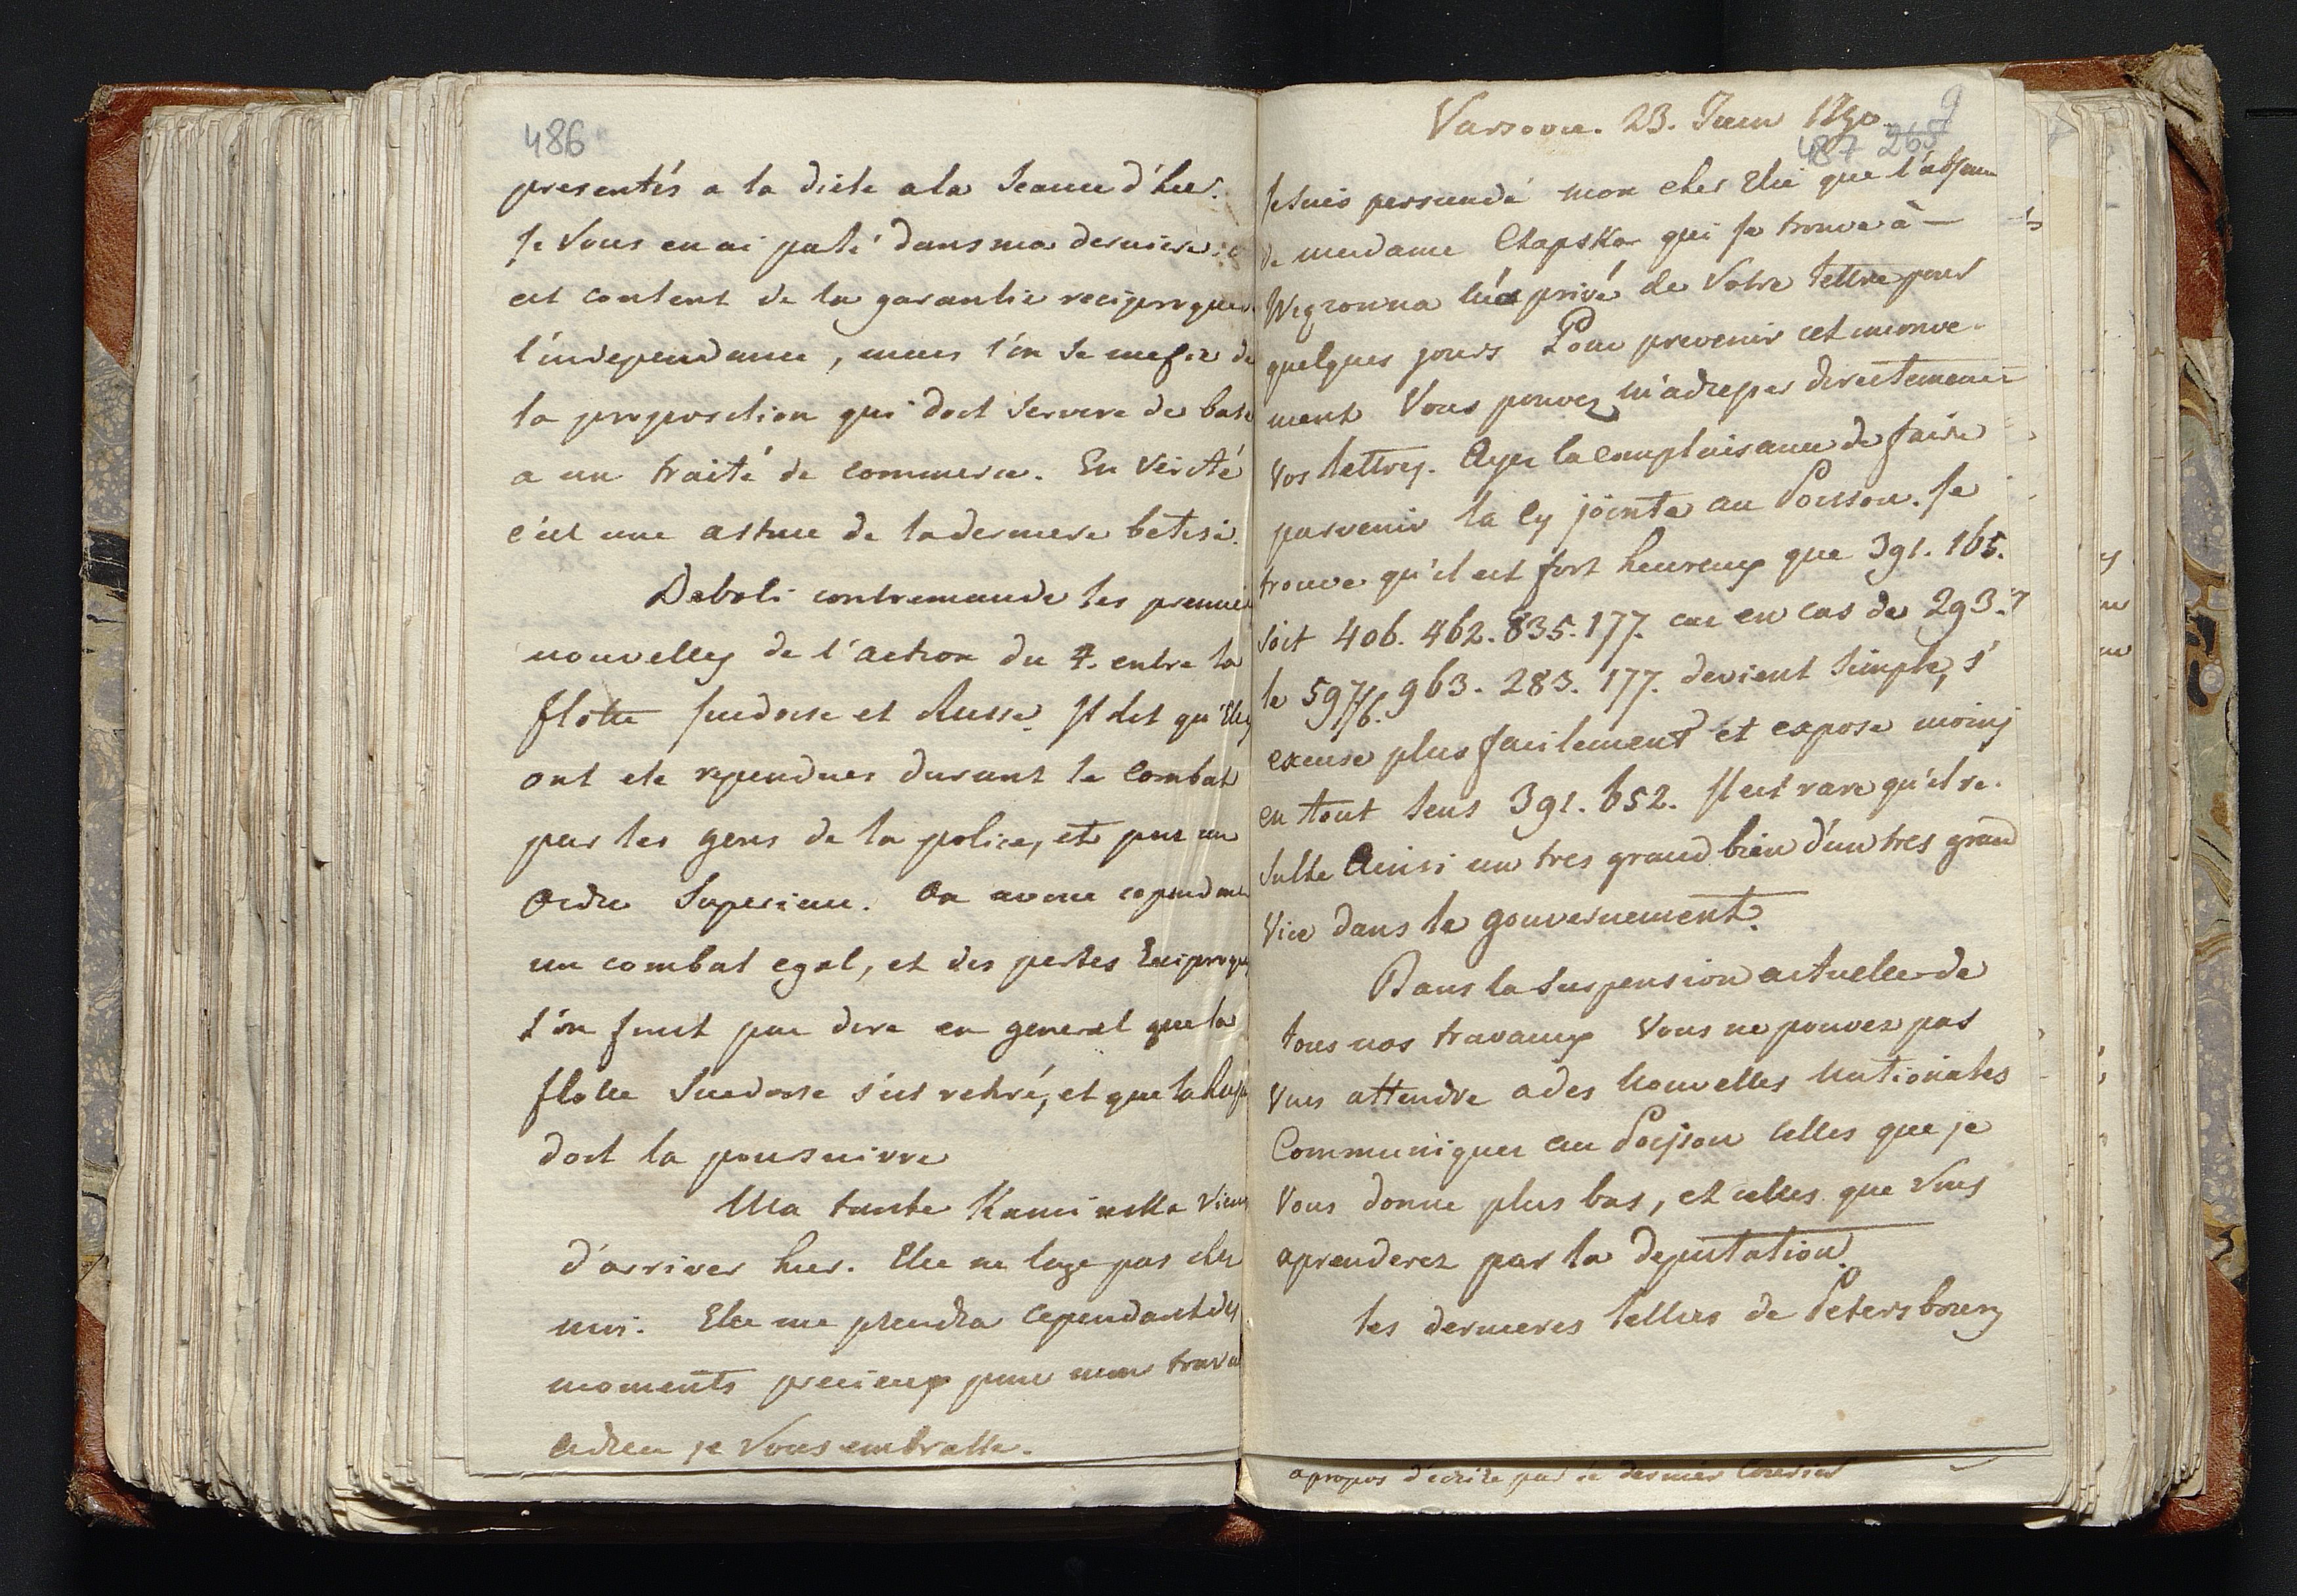 486
presentés a la diete a la Seance d'hier.
Je Vous en ai parlé dans ma derniere:
est content de la garantie reciproque
l'independance, mais l'on se mefie de
la proposition qui doit servire de base
a un traité de commerce. En Verité
c'est une astuce de la derniere betise.
Deboli contremande les premie
nouvelles de l'action du 4. entre la
flotte suedoise et Russe. Il dit qu'Elles
ont ete rependues durant le Combat
par les gens de la police, et par un
Ordre Superieur. On avoue cependant
un combat egal, et des pertes Reciproques
l'on finit par dire en general que la
flotte Suedoise s'est retiré, et que la Russe
doit la poursuivre
Ma tante Kaminska Vient
d'arriver hier. Elle ne loge pas chez
moi. Elle me prendra Cependant des
moments precieux pour mon trava
adieu je Vous embrasse.
Varsovie. 23. Juin 1790.
9
487 265
Je suis persuadé mon cher Elie que l'absence
de madame Czapska qui se trouve à
privé de Votre lettre pour
quelques jours Pour prevenir cet inconve-
nient Vous pouvez m'adresser directement
Vos lettres. Ayez la complaisance de faire
parvenir la cy jointe au Poisson. Je
trouve qu'il est fort heureux que 391. 165.
soit 406. 462. 835. 177. car en cas de 293.
le 597/16. 963. 283. 177. devient simple, s'
excuse plus facilement et expose moins
en tout sens 391. 652. Il est rare qu'il re-
sulte Ainsi un tres grand bien d'un tres grand
Vice dans le gouvernement.
Dans la Suspension actuelle de
tous nos travaux Vous ne pouvez pas
Vous attendre a des Nouvelles Nationales
Communiquez au Poisson Celles que je
Vous donne plus bas, et celles que Vous
aprenderez par la deputation.
les dernieres lettres de Petersbourg
apropos d'ecrire par le dernier Courier